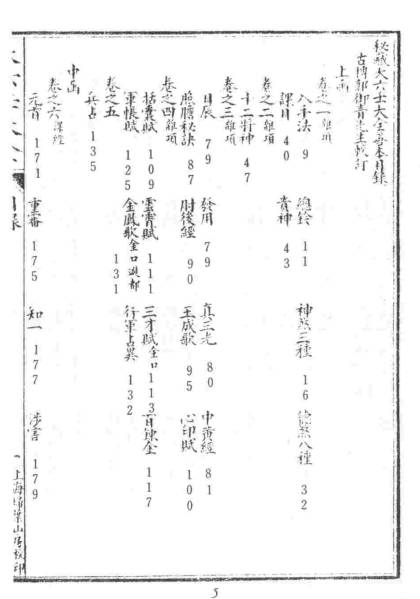 秘藏大六壬大全善本目錄
古博郭御青先生校訂
上函
卷之一雜項
入手法 9 總鈐 11 神煞三種 16 德煞八種 32
課目 40 貴神 43
卷之二雜項
十二將神 47
卷之三雜項
日辰 79 發用 79 真三光 80 中黃經 81
卷之四雜項
照膽秘訣 87 肘後經 90 玉成歌 95 心印賦 100
括囊賦 109 雲霄賦 111 三才賦金口 113 百鍊金 117
軍帳賦 125 金鳳歌金口 131 行軍占異 132
卷之五
兵占 135
中函
卷之六課經
元首 171 重審 175 知一 177 涉害 179
目錄
上海 葉山房校印
5